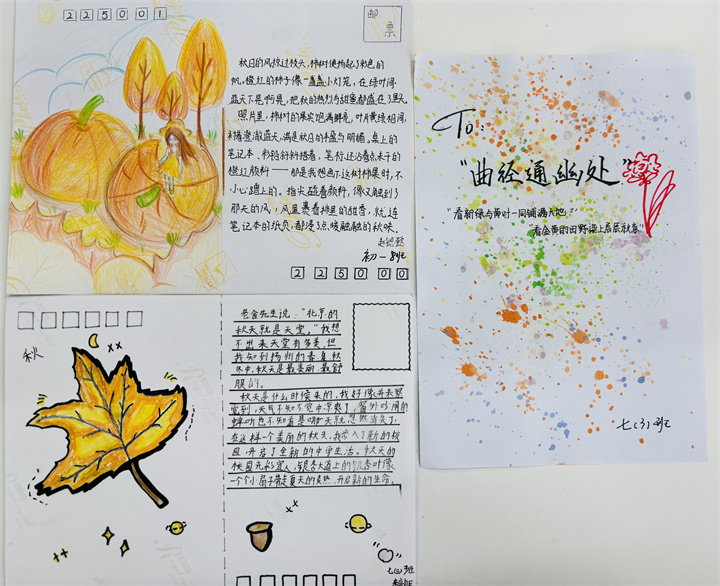 225001
邮
票
秋日的风掠过枝头,柿树便扬起了彩色的
帆。橙红的柿子像一盏盏小灯笼,在绿叶间
蓝天下晃啊晃,把秋的热烈与甜蜜都盛在了里头。
照片里,柿树的果实饱满鲜亮,叶片黄绿相间,
澄澈蓝天,满是秋日的丰盛与明媚。桌上的
笔记本、彩铅斜斜搭着,笔杆还沾着点未干的
橙红颜料——那是我想画下这树柿果时,不
小心蹭上的。指尖碰着颜料,像又触到了
那天的风,风里裹着柿里的甜香,就连
笔记本的纸页,都浸了点暖融融的秋味。
初一
225000
To:
"曲径通幽处"
"看新绿与黄叶一同铺满大地,
"看金黄的田野染上层层秋意"
七(3)班
秋
老舍先生说:"北京的
秋天就是天堂。"我想
不出来天堂有多美,但
我知道扬州的春夏秋
冬中,秋天是最美丽、最舒
服的。
秋天是什么时候来的,我好像并未察
觉到,天气不知不觉中凉爽了,窗外吵闹的
蝉听也不知道是哪天就悄然消失了。
在这样一个美丽的秋天,我步入了新的校
园,开启了全新的中学生活。秋天的
校园光彩宜人,银杏大道上的银杏叶像
一个个小扇子带走夏天的炎热,开启新的生命。
七(四)班